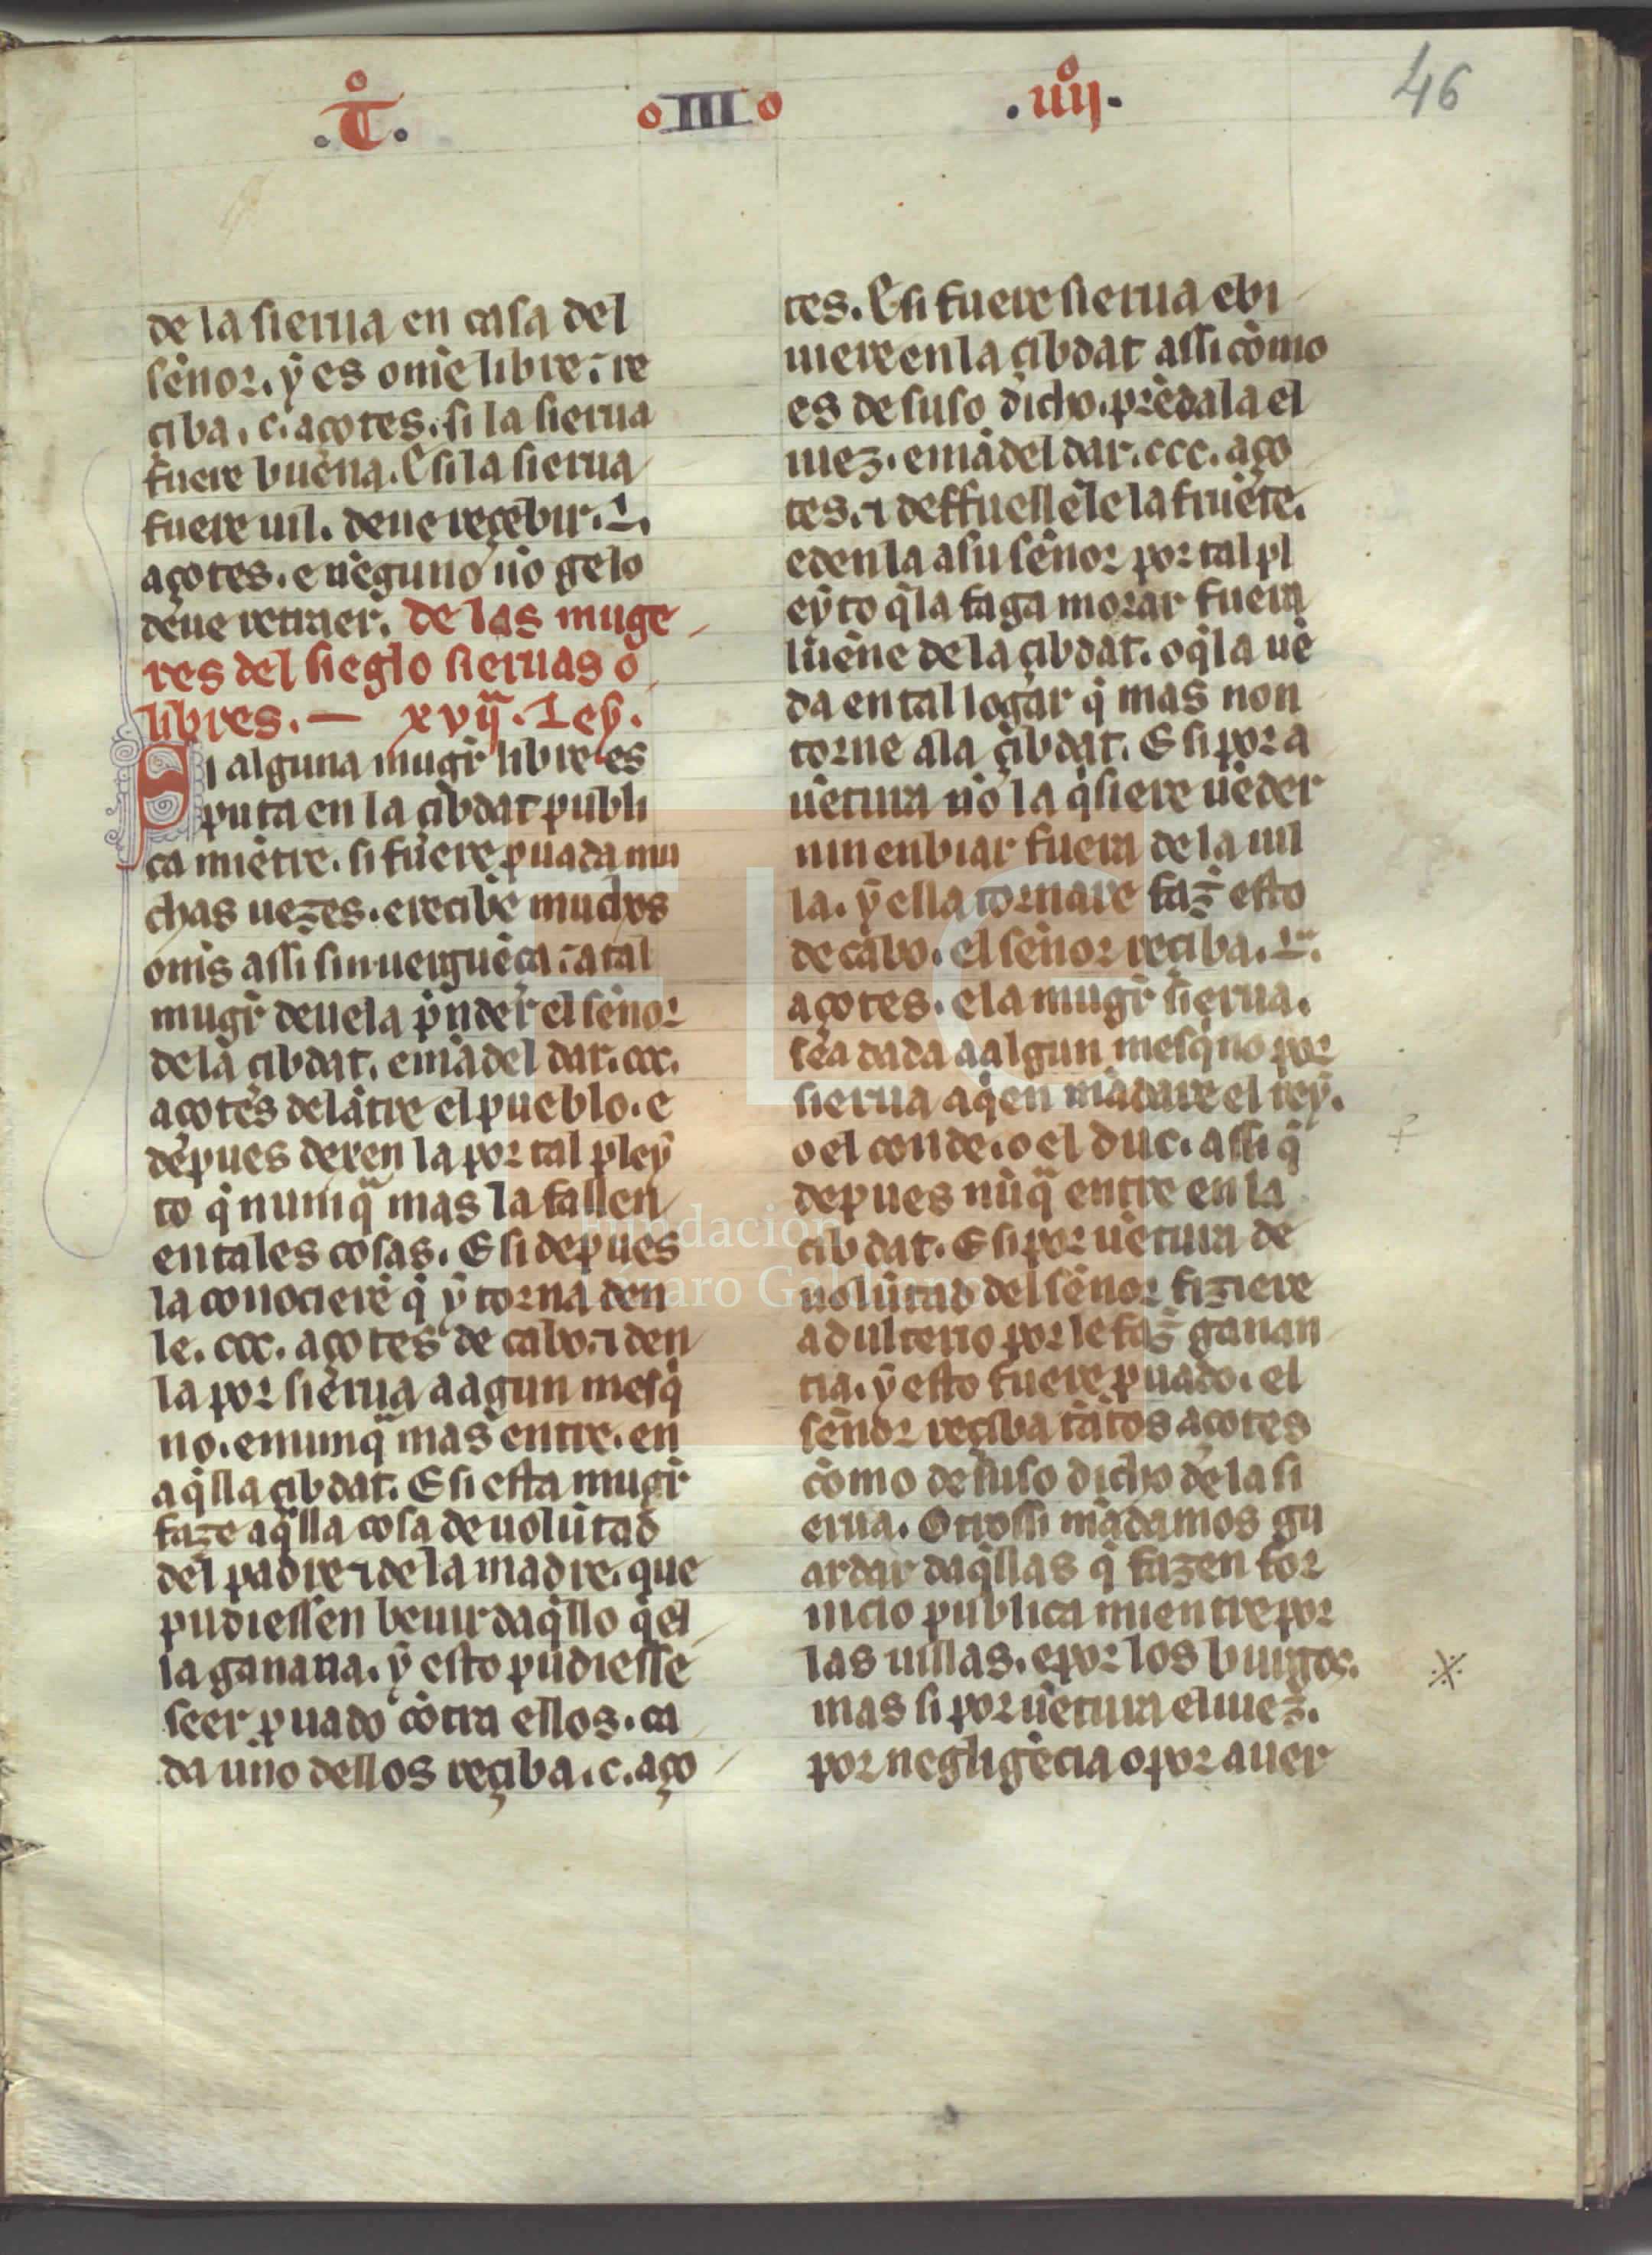 .T͛o.
o III o
.iiijo.
46
de la sierua en casa del
señor. ẏ es om̃e libre. ⁊ re
ciba. c. açotes. si la sierua
fuere buena. E si la sierua
fuere uil. deue reçebir. L.
açotes. e nẽguno nõ gelo
deue retraer. de las muge
res del sieglo sieruas o
libres. — xvijª. Ley.
Si alguna mugr̃ libre es
puta en la çibdat publi
ca miẽtre. si fuere ꝓuada mu
chas uezes. e recibẽ muchos
om̃s assi sin uerguẽça. ⁊ a tal
mugr̃ deuela p̃nder el señor
de la çibdat. e mãdel dar. ccc.
açotes delãtre el pueblo. e
depues dexen la por tal pley
to q̃ nunqª mas la fallen
en tales cosas. E si depues
la conocierẽ q̃ ẏ torna den
le. ccc. açotes de cabo. ⁊ den
la por sierua a agun mesq̃
no. e nunqª mas entre. en
aq̃lla çibdat. E si esta mugr̃
faze aq̃lla cosa de uolũtad
del padre ⁊ de la madre. que
pudiessen beuir daq̃llo q̃ el
la ganaua. ẏ esto pudiesse
seer ꝓuado cõtra ellos. ca
da uno dellos reçiba. c. aço
tes. E si fuere sierua e bi
uiere en la çibdat assi cõmo
es de suso dicho. prẽdala el
iuez. e mãdel dar. ccc. aço
tes. ⁊ deffuellẽle la fruẽte.
e den la a su señor por tal pl
eyto q̃ la faga morar fuera
lueñe de la çibdat. o q̃ la uẽ
da en tal logar q̃ mas non
torne a la çibdat. E si por a
uẽtura nõ la q̃siere uẽder
nin enbiar fuera de la uil
la. ẏ ella tornare faz̃ esto
de cabo. el señor reciba. L.
açotes. e la mugr̃ sierua.
sea dada a algun mesq̃no por
sierua a q̃en mãdare el rey.
o el conde. o el duc. assi q̃
depues nũqª entre en la
çibdat. E si por uẽtura de
uolũtad del señor fiziere
adulterio por le faz̃ ganan
cia. ẏ esto fuere ꝓuado. el
señor reçiba tãtos açotes
cõmo de suso dicho de la si
erua. Otrossi mãdamos gu
ardar daq̃llas q̃ fazen for
nicio publica mientre por
las uillas. e por los burgos.
mas si por uẽtura el iuez̃.
por negligẽcia o por auer
FLG
Fundación
Lázaro Galdiano